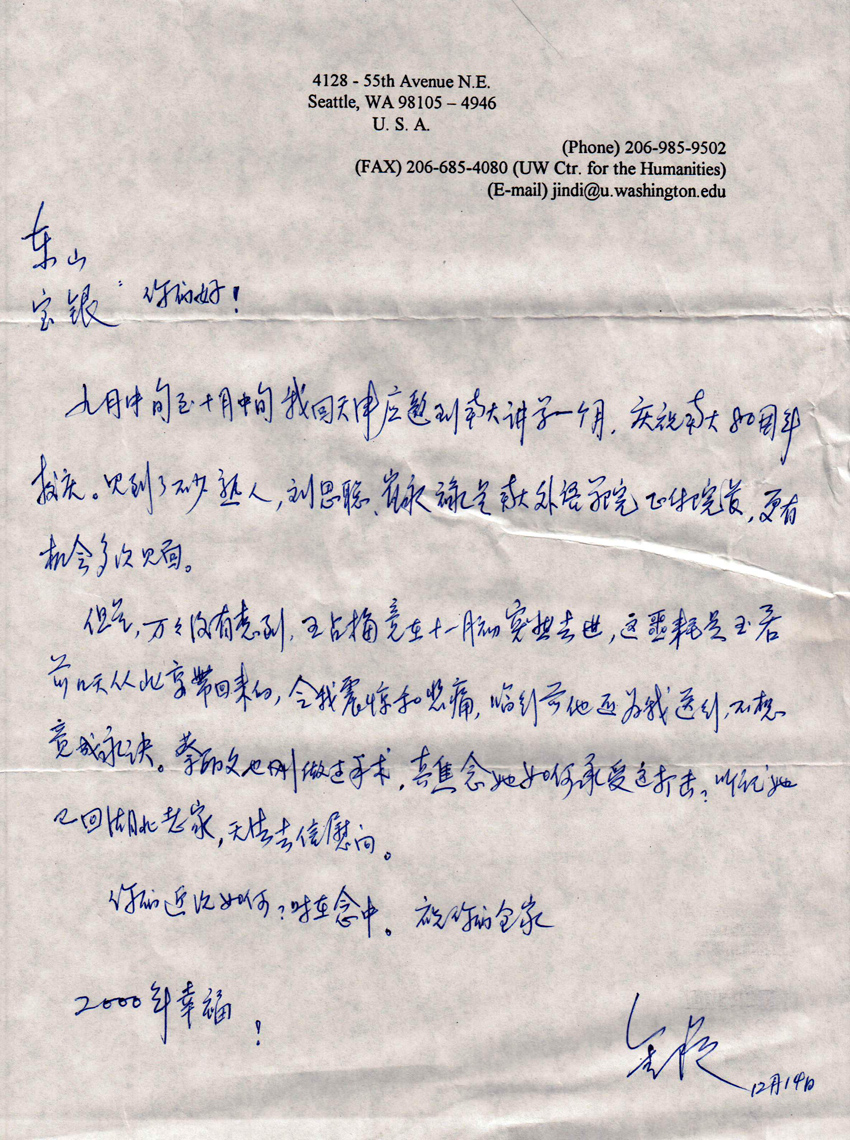 4128 - 55th Avenue N.E.
Seattle, WA 98105 – 4946
U. S. A.
(Phone) 206-985-9502
(FAX) 206-685-4080 (UW Ctr. for the Humanities)
(E-mail) jindi@u.washington.edu
东山
宝银: 你们好!
九月中旬至十月中旬我回天津应邀到南大讲学一个月,庆祝南大80周年
校庆。见到了不少熟人,刘思聪、崔永禄是南大外语学院正付院长,更有
机会多次见面。
但是,万万没有想到,王占梅竟在十一月初突然去世,这噩耗是玉若
前几天从北京带回来的,令我震惊和悲痛,临行前他还为我送行,不想
竟成永诀。蔡丽文也刚做过手术,真焦念她如何承受这打击?听说她
已回湖北老家,无法去信慰问。
你们近况如何?时在念中。祝你们全家
2000年幸福!
金隄
12月14日